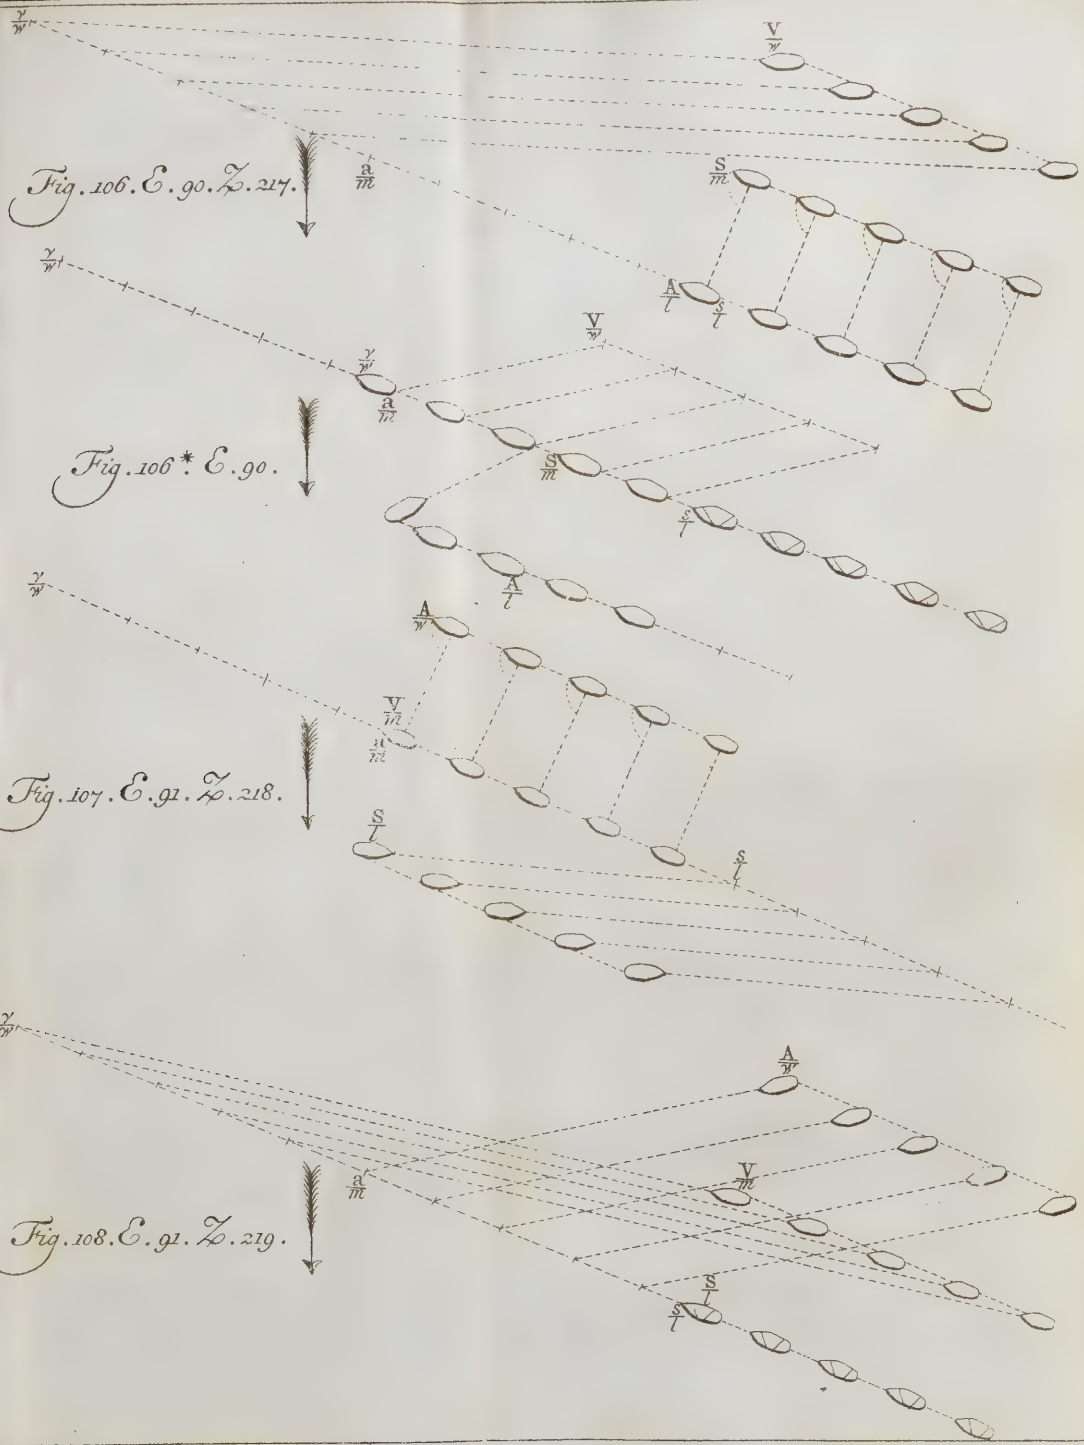 γ/w
V/w
a/m
S/m
Fig. 106. E. 90. Z. 217.
A/l s/l
γ/w
V/w
γ/w
a/m
Fig. 106*. E. 90.
S/m
s/l
A/l
γ/w
A/w
V/m
a/m
Fig. 107. E. 91. Z. 218.
S/l
s/l
γ/w
A/w
a/m
V/m
Fig. 108. E. 91. Z. 219.
S/l
s/l